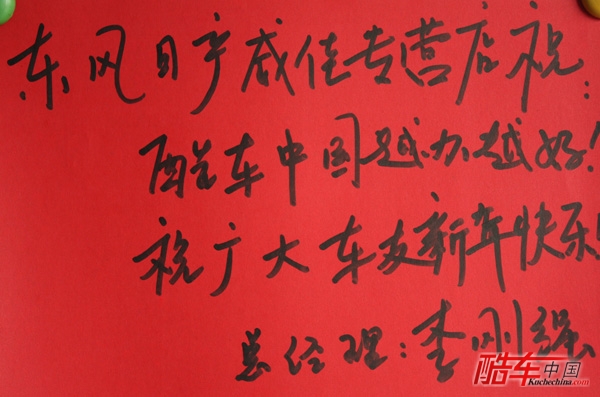 东风日产威佳专营店祝:
酷车中国越办越好!
祝广大车友新年快乐!
总经理:李刚强
酷车中国
Kuchechina.com